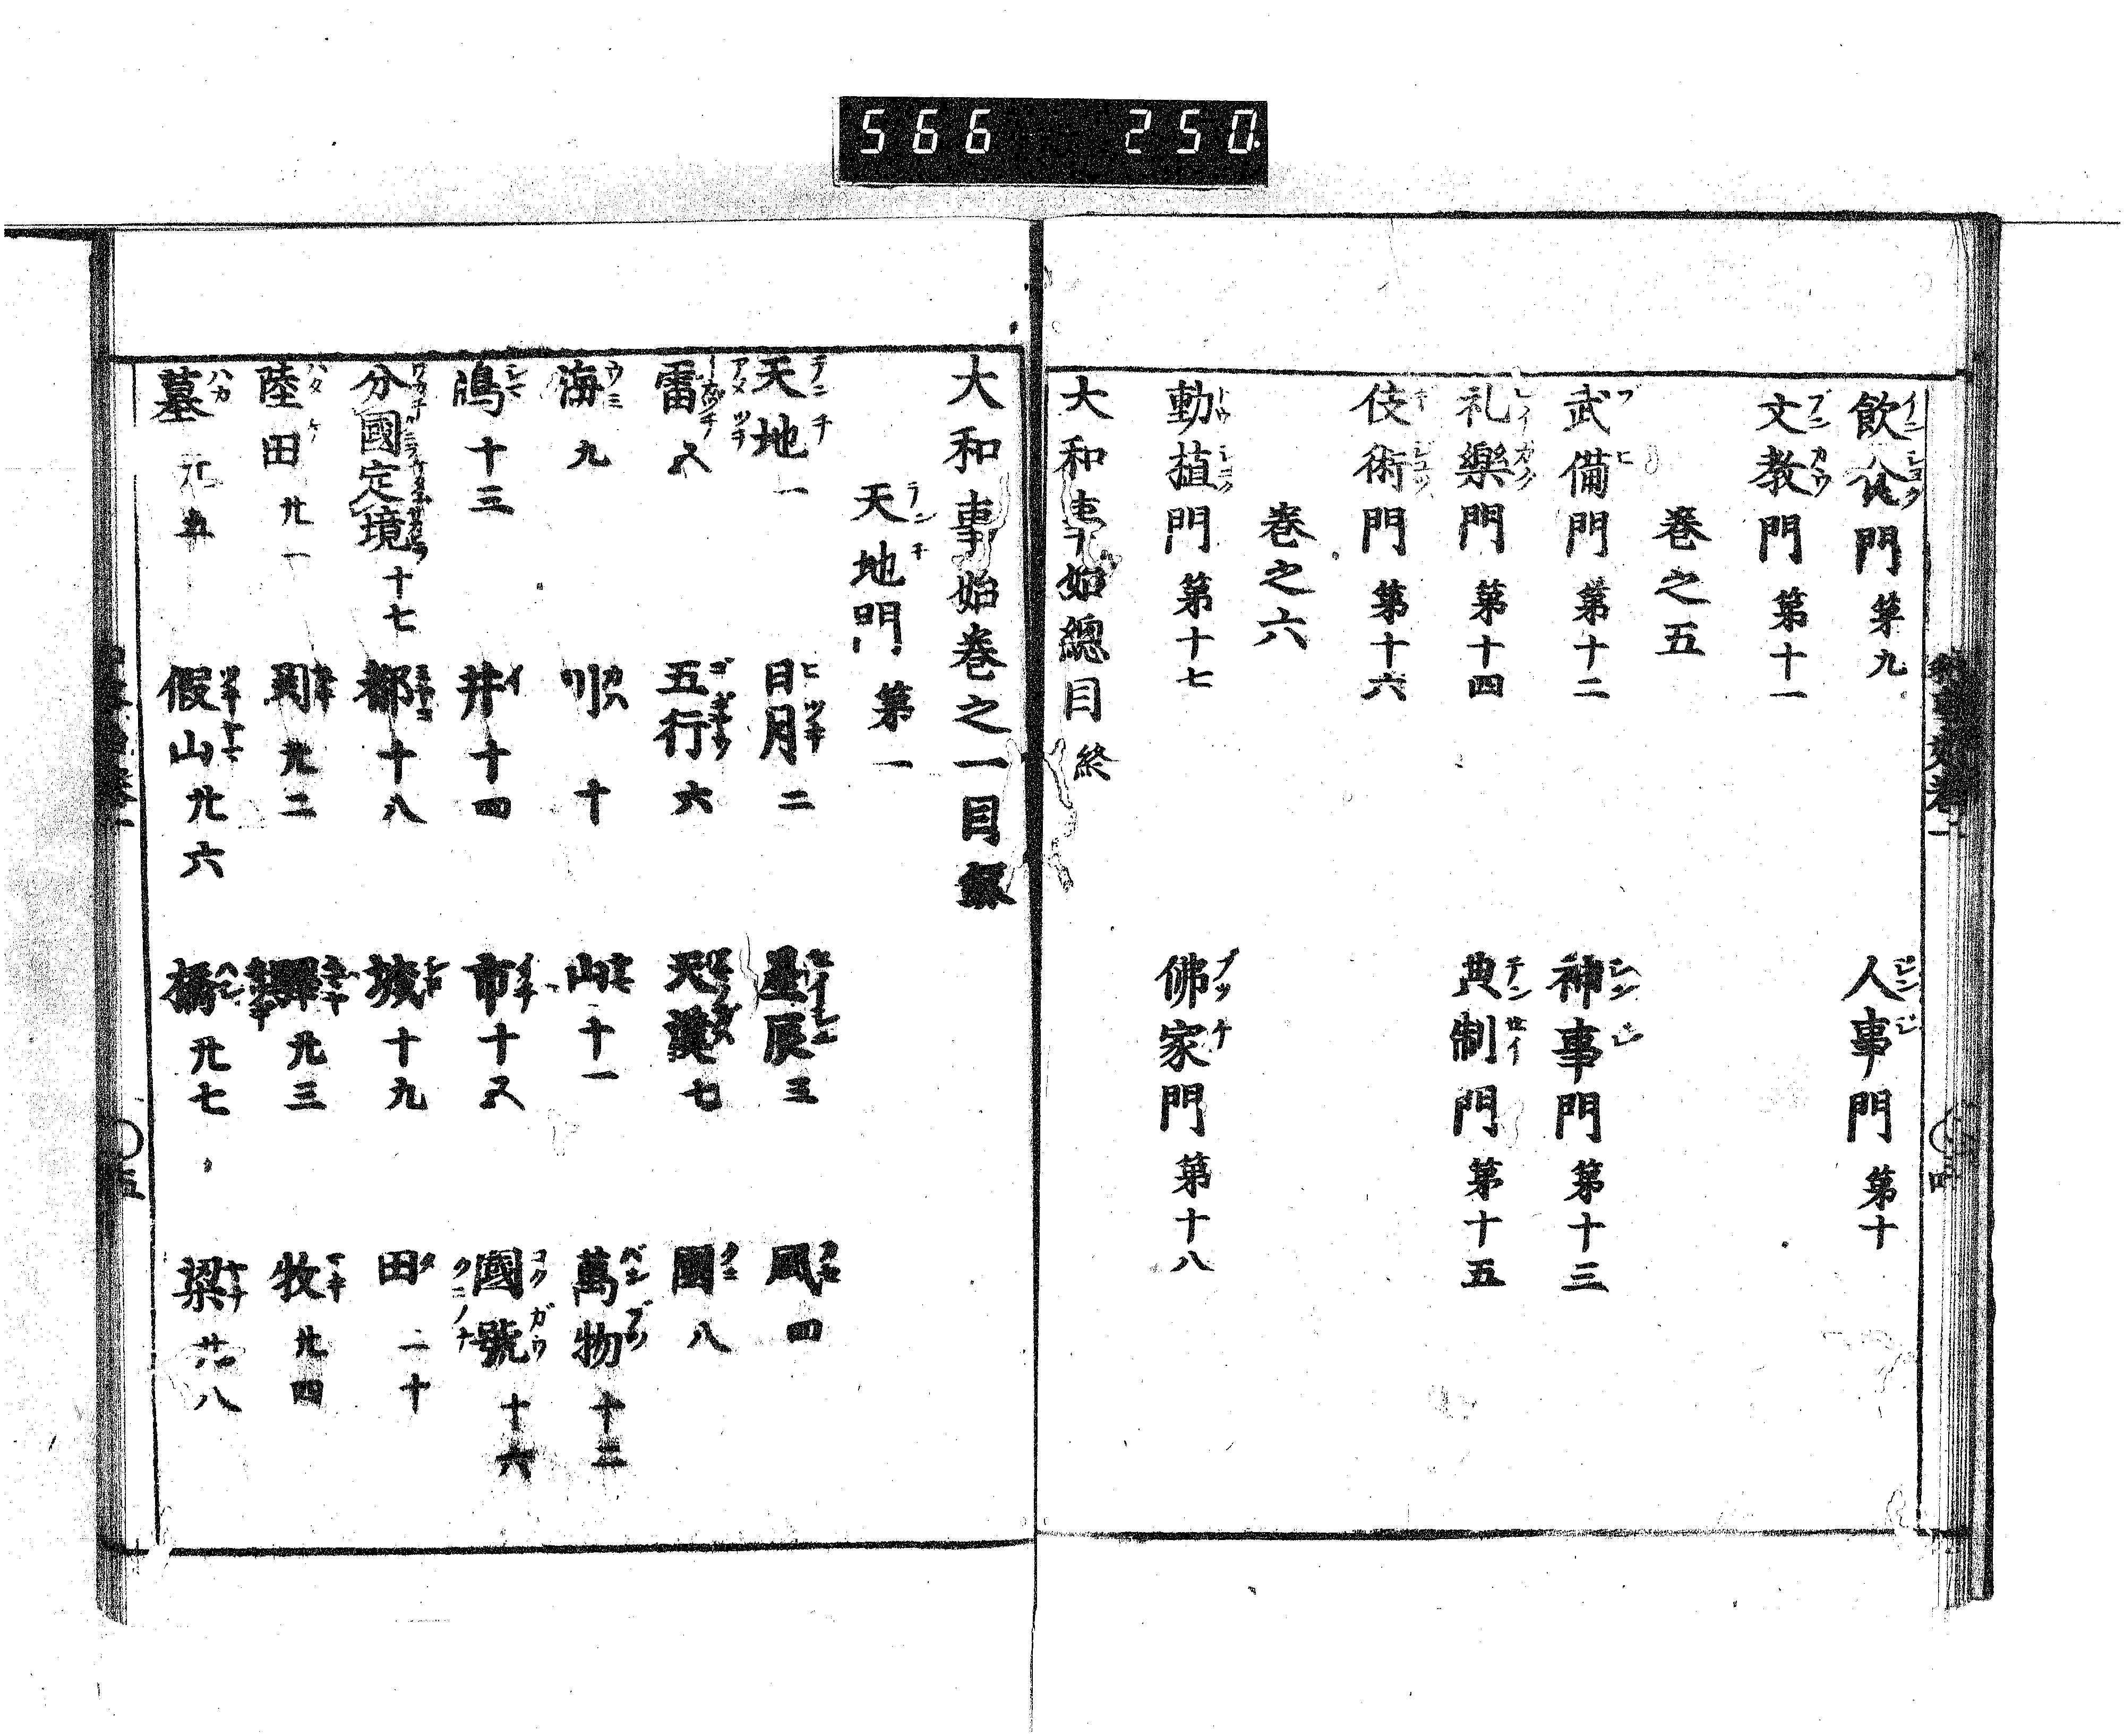 566 250
飲食門 第九 人事門 第十
文教門 第十一
巻之五
武備門 第十二 神事門 第十三
礼樂門 第十四 典制門 第十五
伎術門 第十六
巻之六
動植門 第十七 佛家門 第十八
大和事始總目 終
大和事始巻之一目録
天地門 第一
天地 一 日月 二 星辰 三 風 四
雷 五 五行 六 天漢 七 國 八
海 九 川 十 山 十一 萬物 十二
嶋 十三 井 十四 市 十五 國號 十六
分國定境 十七 都 十八 城 十九 田 二十
陸田 廿一 廿二 驛 廿三 牧 廿四
墓 廿五 假山 廿六 橋 廿七 梁 廿八